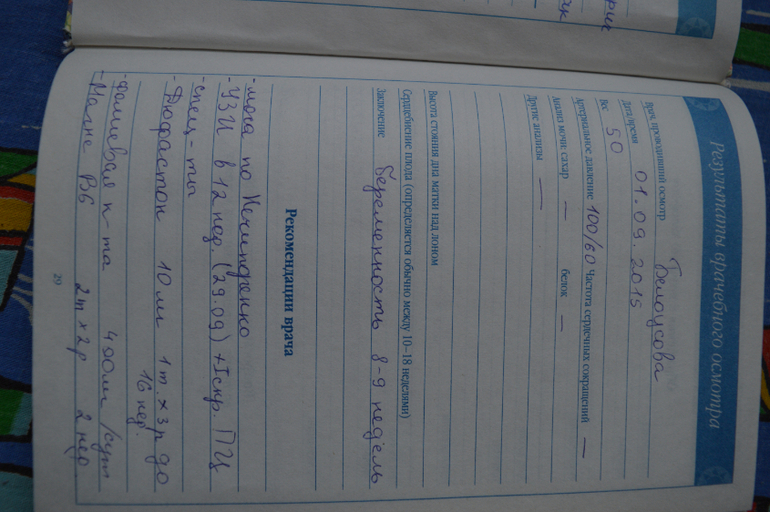 Результаты врачебного осмотра
Врач, проводивший осмотр Белоусова
Дата/время 01.09.2015
Вес 50
Артериальное давление 100/60 Частота сердечных сокращений —
Анализ мочи: сахар — белок —
Другие анализы —
Высота стояния дна матки над лоном
Сердцебиение плода (определяется обычно между 10–18 неделями)
Заключение беременность 8-9 недель
Рекомендации врача
- моча по Нечипоренко
- УЗИ в 12 нед. (29.09) + I скр. ПЦ
- спец-ты
- Дюфастон 10 мг 1т. х 3р до
16 нед.
- фолиевая к-та 400мг /сут
- Магне В6 2т х 2р 2 нед
29